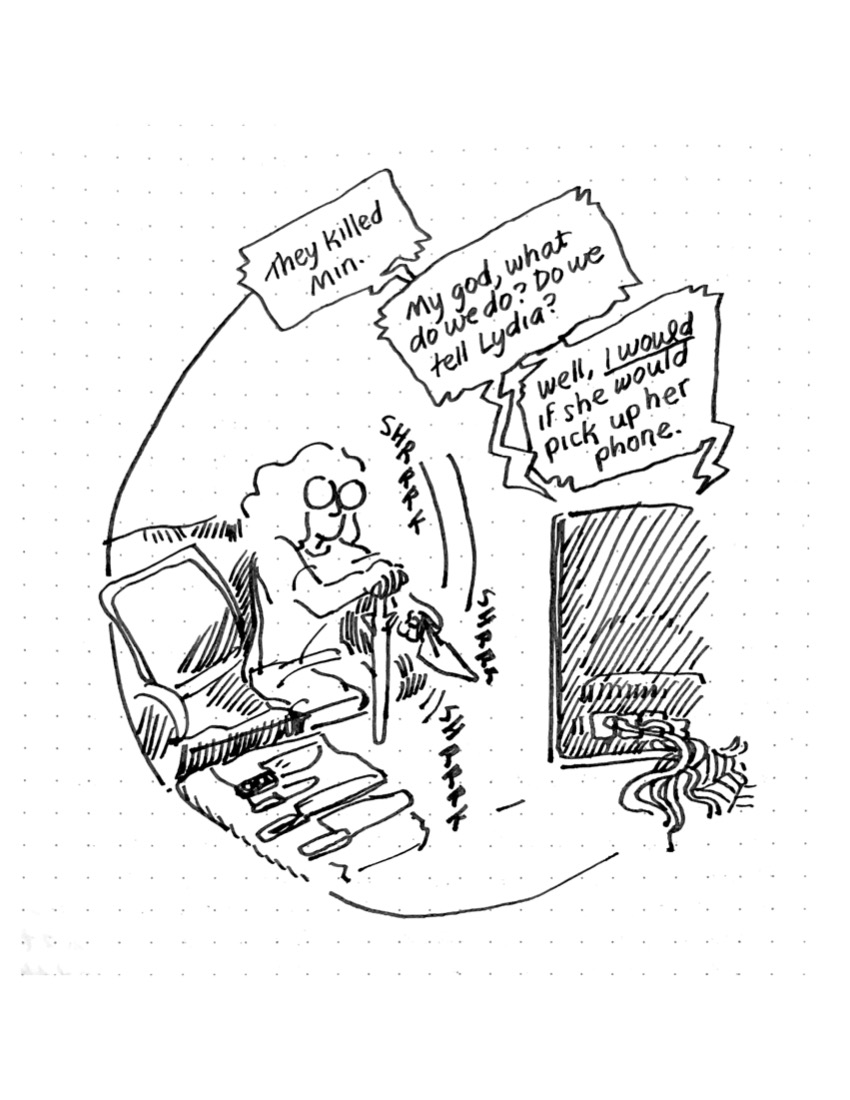 They killed
Min.
My god, what
do we do? Do we
tell Lydia?
Well, I would
if she would
pick up her
phone.
SHRRRK
SHRRK
SHRRRK